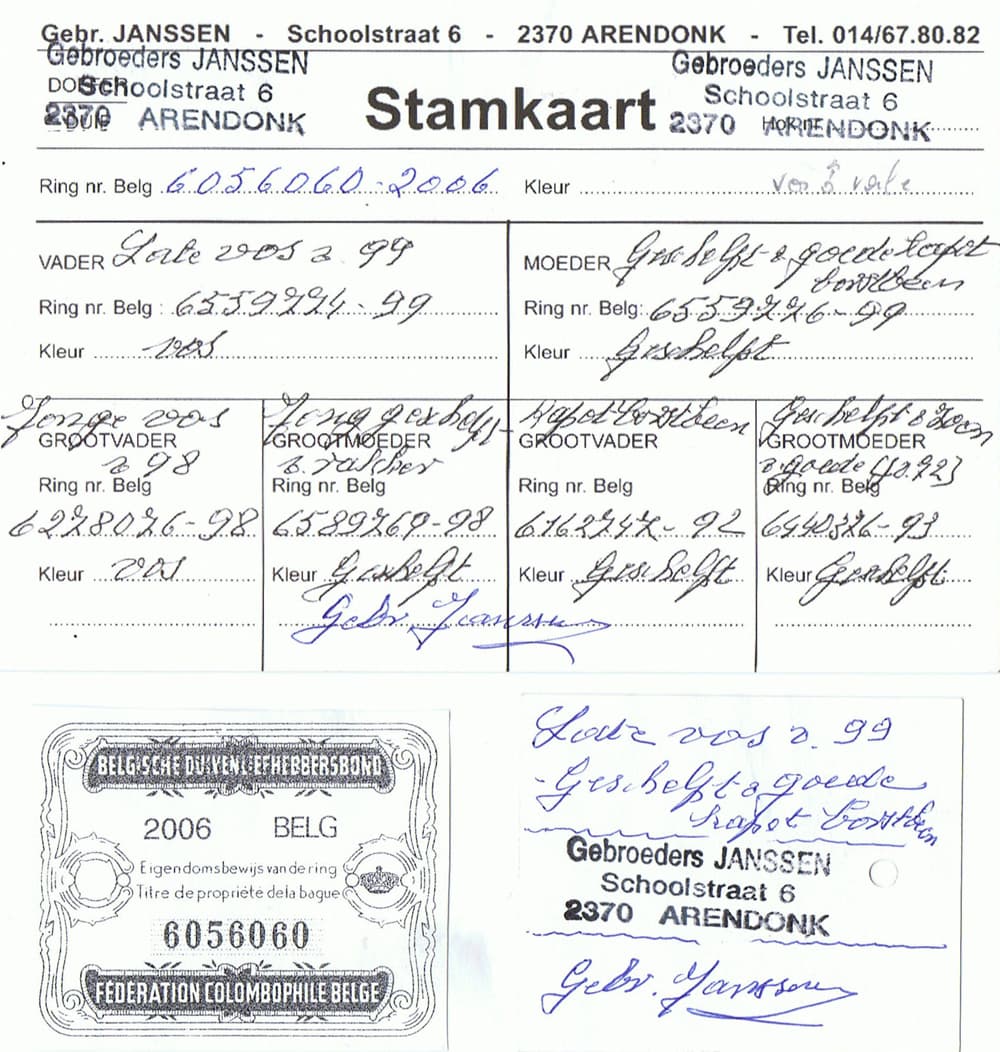 Gebr. JANSSEN - Schoolstraat 6 - 2370 ARENDONK - Tel. 014/67.80.82
Gebroeders JANSSEN
Schoolstraat 6
2370 ARENDONK
Stamkaart
Gebroeders JANSSEN
Schoolstraat 6
2370 ARENDONK
Hok nr.
Ring nr. Belg 6056060-2006
Kleur vos
VADER Late vos v. 99
Ring nr. Belg : 6559774-99
Kleur vos
MOEDER Geschelpt & goede kapot
borstbeen
Ring nr. Belg: 6559776-99
Kleur Geschelpt
Jonge vos
GROOTVADER
v 98
Ring nr. Belg
6278076-98
Kleur vos
Jong geschelpt
GROOTMOEDER
Ring nr. Belg
6589769-98
Kleur Geschelpt
Kapot borstbeen
GROOTVADER
Ring nr. Belg
6762747-92
Kleur Geschelpt
Geschelpt & Zoon
GROOTMOEDER
v. goede
Ring nr. Belg
6440376-93
Kleur Geschelpt
Gebr. Janssen
BELGISCHE DUIVENLIEFHEBBERSBOND
2006 BELG
Eigendomsbewijs van de ring
Titre de propriété de la bague
6056060
FEDERATION COLOMBOPHILE BELGE
Late vos v. 99
- Geschelpt & goede
kapot borstbeen
Gebroeders JANSSEN
Schoolstraat 6
2370 ARENDONK
Gebr. Janssen